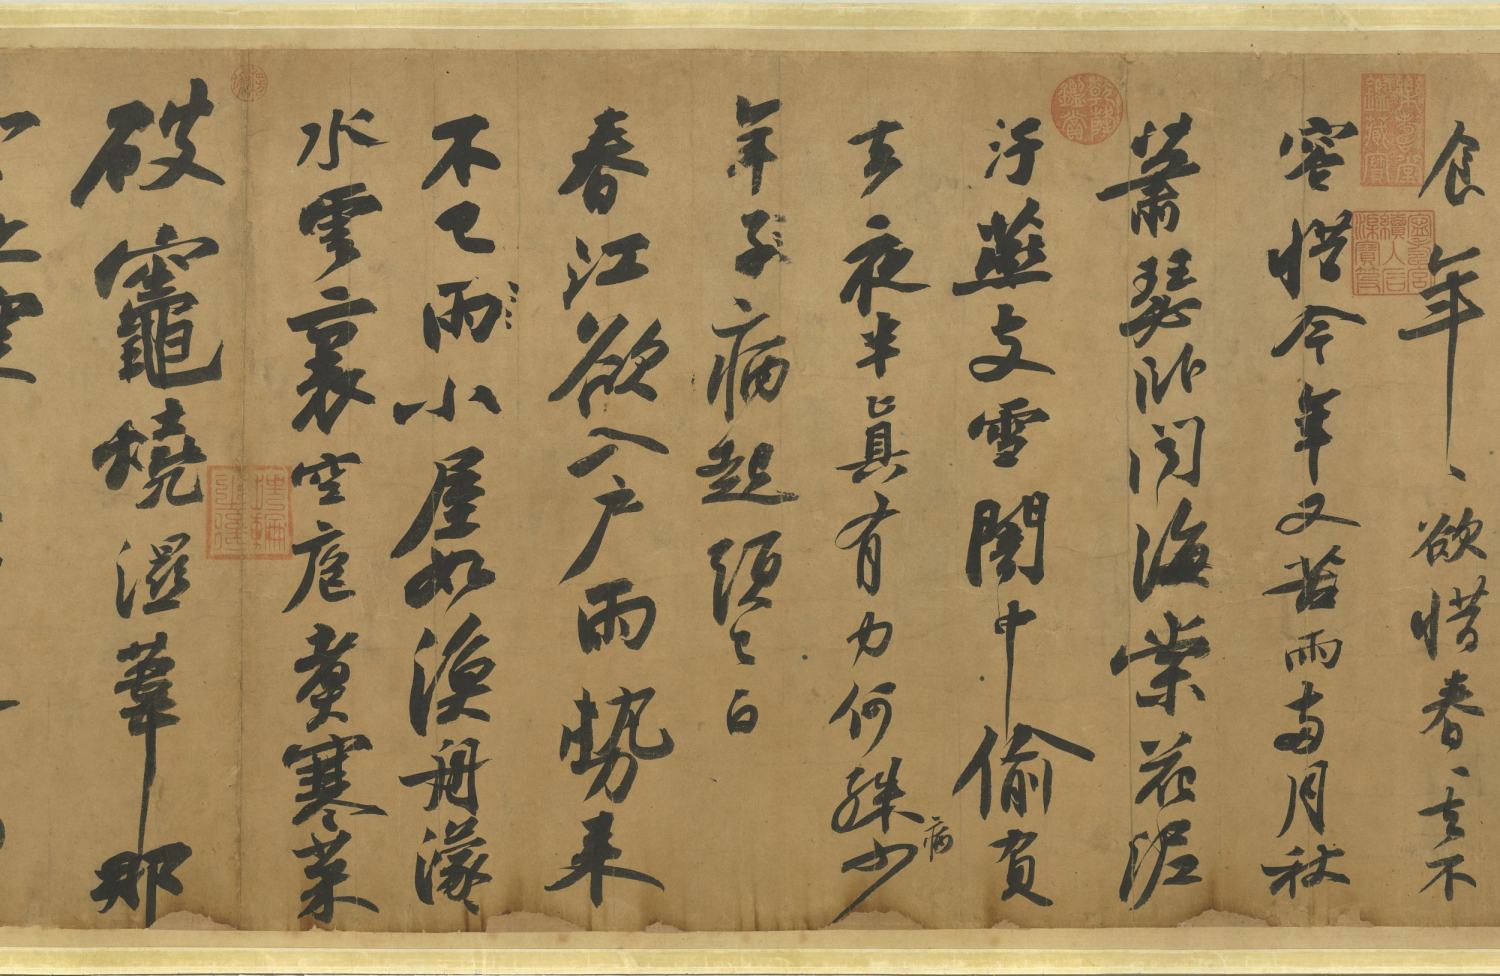 食年〻欲惜春〻去不
容惜今年又苦雨兩月秋
蕭瑟臥聞海棠花泥
汙燕支雪闇中偷負
去夜半真有力何殊少
病
年子病起頭已白
春江欲入戶雨勢來
不已雨小屋如漁舟濛〻
水雲裏空庖煮寒菜
破竈燒濕葦那
乾隆鑑賞